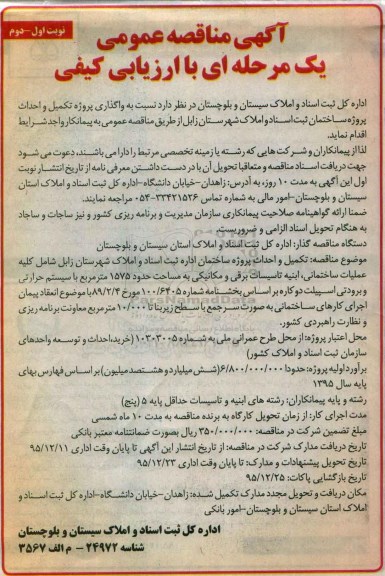 نوبت اول-دوم
آگهی مناقصه عمومی
یک مرحله ای با ارزیابی کیفی
اداره کل ثبت اسناد و املاک سیستان و بلوچستان در نظر دارد نسبت به واگذاری پروژه تکمیل و احداث
پروژه ساختمان ثبت اسناد و املاک شهرستان زابل از طریق مناقصه عمومی به پیمانکار واجد شرایط
اقدام نماید.
لذا از پیمانکاران و شرکت هایی که رشته یا زمینه تخصصی مرتبط را دارا می باشند، دعوت می شود
جهت دریافت اسناد مناقصه و متعاقبا تحویل آن با در دست داشتن معرفی نامه از تاریخ انتشار نوبت
اول این آگهی به مدت ۱۰ روز، به آدرس: زاهدان-خیابان دانشگاه-اداره کل ثبت اسناد و املاک استان
سیستان و بلوچستان-امور مالی به شماره تماس ۳۳۴۲۱۵۲۶-۰۵۴ مراجعه نمایند.
ضمنا ارائه گواهینامه صلاحیت پیمانکاری سازمان مدیریت و برنامه ریزی کشور و نیز ساجات و ساجاد
به هنگام تحویل اسناد الزامی و ضروریست.
دستگاه مناقصه گذار: اداره کل ثبت اسناد و املاک استان سیستان و بلوچستان
موضوع مناقصه: تکمیل و احداث پروژه ساختمان اداره ثبت اسناد و املاک شهرستان زابل شامل کلیه
عملیات ساختمانی، ابنیه تاسیسات برقی و مکانیکی به مساحت حدود ۱۵۷۵ مترمربع با سیستم حرارتی
و برودتی اسپیلت دو کاره بر اساس بخشنامه شماره ۱۰۰/۶۴۰۵ مورخ ۸۹/۲/۴ با موضوع انعقاد پیمان
اجرای کارهای ساختمانی به صورت سرجمع با سطح زیربنا تا ۱۰/۰۰۰ متر مربع معاونت برنامه ریزی
و نظارت راهبردی کشور.
محل اعتبار پروژه: از محل طرح عمرانی ملی به شماره ۱۰۳۰۳۰۰۵ (خرید، احداث و توسعه واحدهای
سازمان ثبت اسناد و املاک کشور)
برآورد اولیه پروژه: حدودا ۶/۸۰۰/۰۰۰/۰۰۰ (شش میلیارد و هشتصد میلیون) بر اساس فهارس بهای
پایه سال ۱۳۹۵
رشته و پایه پیمانکاران: رشته های ابنیه و تاسیسات حداقل پایه ۵ (پنج)
مدت اجرای کار: از زمان تحویل کارگاه به برنده مناقصه به مدت ۱۰ ماه شمسی
مبلغ تضمین شرکت در مناقصه: ۳۵۰/۰۰۰/۰۰۰ ریال بصورت ضمانتنامه معتبر بانکی
تاریخ دریافت مدارک شرکت در مناقصه: از تاریخ انتشار این آگهی تا پایان وقت اداری ۹۵/۱۲/۱۱
تاریخ تحویل پیشنهادات و مدارک: تا پایان وقت اداری ۹۵/۱۲/۲۳
تاریخ بازگشایی پاکات: ۹۵/۱۲/۲۵
مکان دریافت و تحویل مجدد مدارک تکمیل شده: زاهدان-خیابان دانشگاه-اداره کل ثبت اسناد و
املاک استان سیستان و بلوچستان-امور بانکی
اداره کل ثبت اسناد و املاک سیستان و بلوچستان
شناسه ۲۴۹۷۲ - م الف ۳۵۶۷